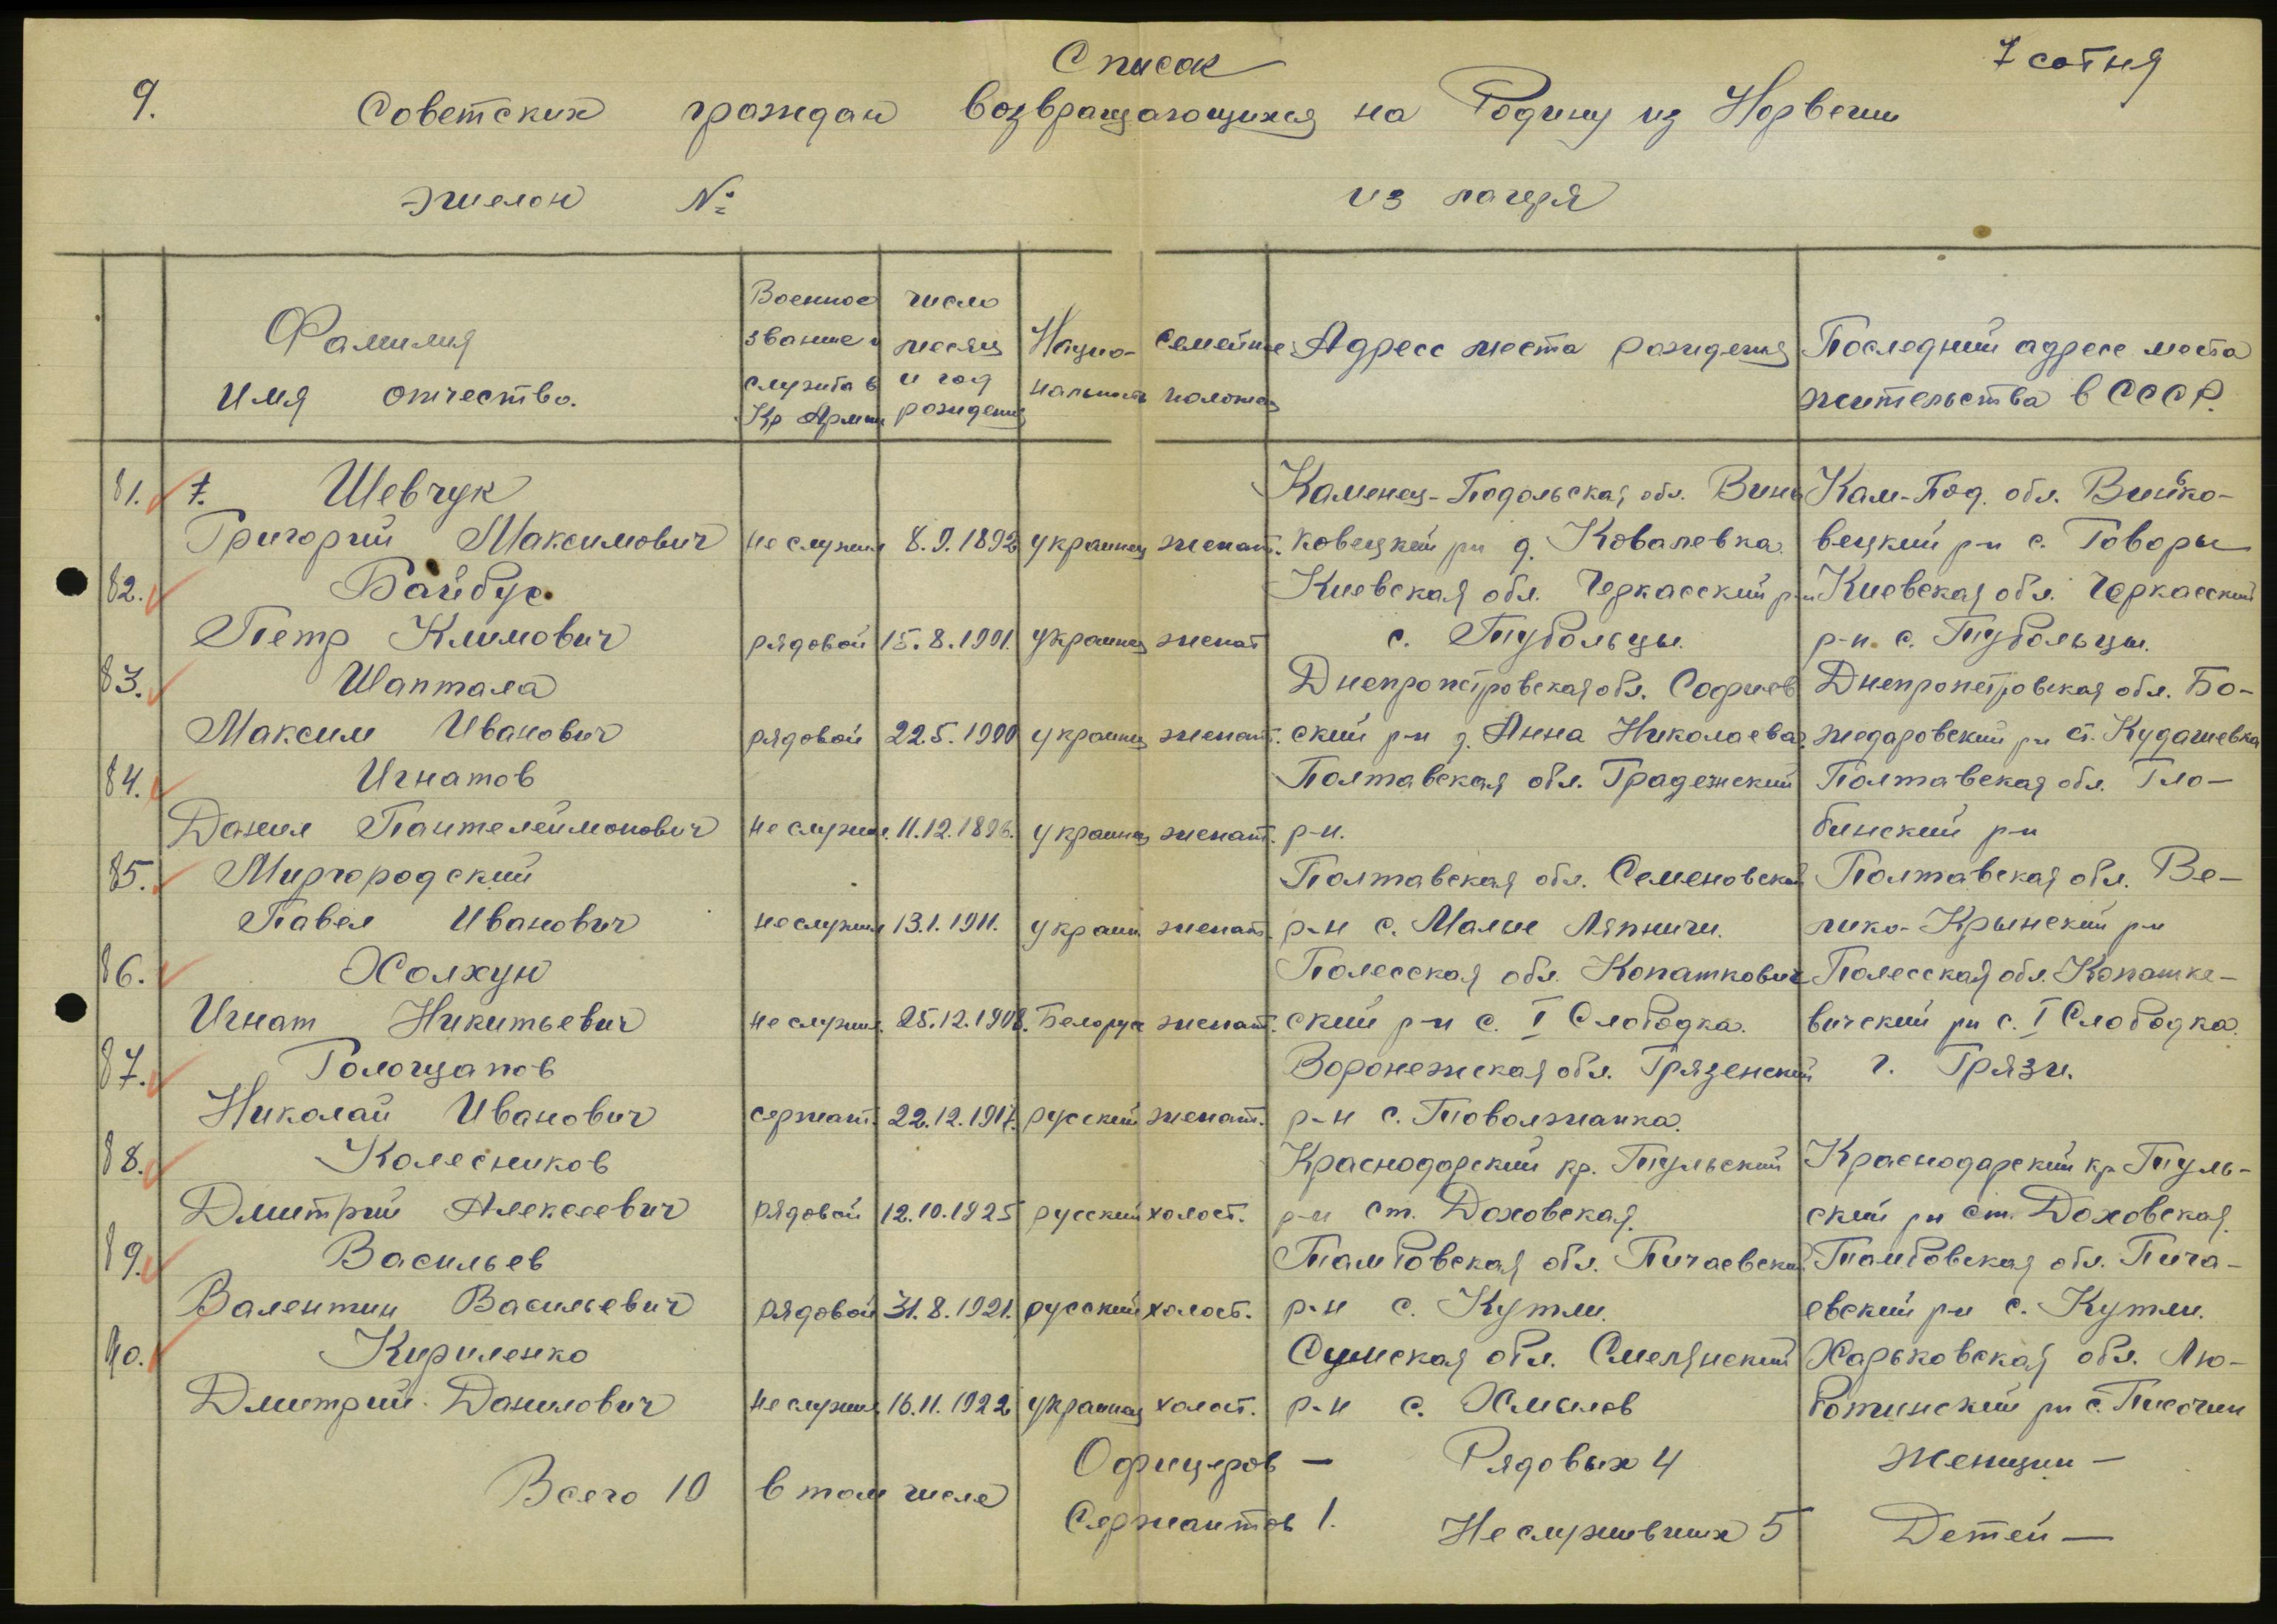 Список
7 сотня
9.
Советских граждан возвращающихся на Родину из Норвегии
эшелон № из лагеря
Фамилия
Имя отчество.
Военное
звание и
служба в
Кр Армии
число
месяц
и год
рождения
Нацио-
нальность
Семейное
положен
Адресс места рождения
Последний адресс места
жительства в СССР.
81. 7. Шевчук Каменец-Подольская обл. Винь Кам-Под. обл. Винько-
Григорий Максимович не служил 8.9.1892 украинец женат. ковецкий рн д. Ковалевка. вецкий р-н с. Говоры
82. Байбус Киевская обл. Черкасский р-н Киевская обл. Черкасский
Петр Климович рядовой 15.8.1901. украинец женат с. Тубольцы. р-н. с. Тубольцы.
83. Шаптала Днепропетровская обл. Софиев Днепропетровская обл. Бо-
Максим Иванович рядовой 22.5.1900 украинец женат. ский р-н д. Анна Николаевка. жедаровский рн ст. Кудашевка
84. Игнатов Полтавская обл. Градежский Полтавская обл. Гло-
Данил Пантелеймонович не служил. 11.12.1896. украинец женат. р-н. бинский р-н
85. Миргородский Полтавская обл. Семеновский Полтавская обл. Ве-
Павел Иванович не служил 13.1.1911. украин женат. р-н с. Малые Ляпничи. лико-Крынский р-н
86. Холхун Полесская обл. Копаткович Полесская обл. Копатке-
Игнат Никитьевич не служил. 25.12.1908. Белорус женат. ский р-н с. I Слободка. вичский рн с. I Слободка.
87. Голощапов Воронежская обл. Грязенский г. Грязи.
Николай Иванович сержант. 22.12.1917. русский женат. р-н с. Товолжанка.
88. Колесников Краснодарский кр. Тульский Краснодарский кр Туль-
Дмитрий Алексеевич рядовой 12.10.1925 русский холост. р-н ст. Даховская. ский рн ст. Даховская.
89. Васильев Тамбовская обл. Пичаевский Тамбовская обл. Пича-
Валентин Васильевич рядовой 31.8.1921. русский холост. р-н с. Кутли. евский р-н с. Кутли.
90. Кириленко Сумская обл. Смелянский Харьковская обл. Лю-
Дмитрий Данилович не служил. 16.11.1922 украинец холост. р-н с. Хмылов ботинский рн с. Писочин
Офицеров — Рядовых 4 Женщин —
Всего 10 в том числе
Сержантов 1. Не служивших 5 Детей —